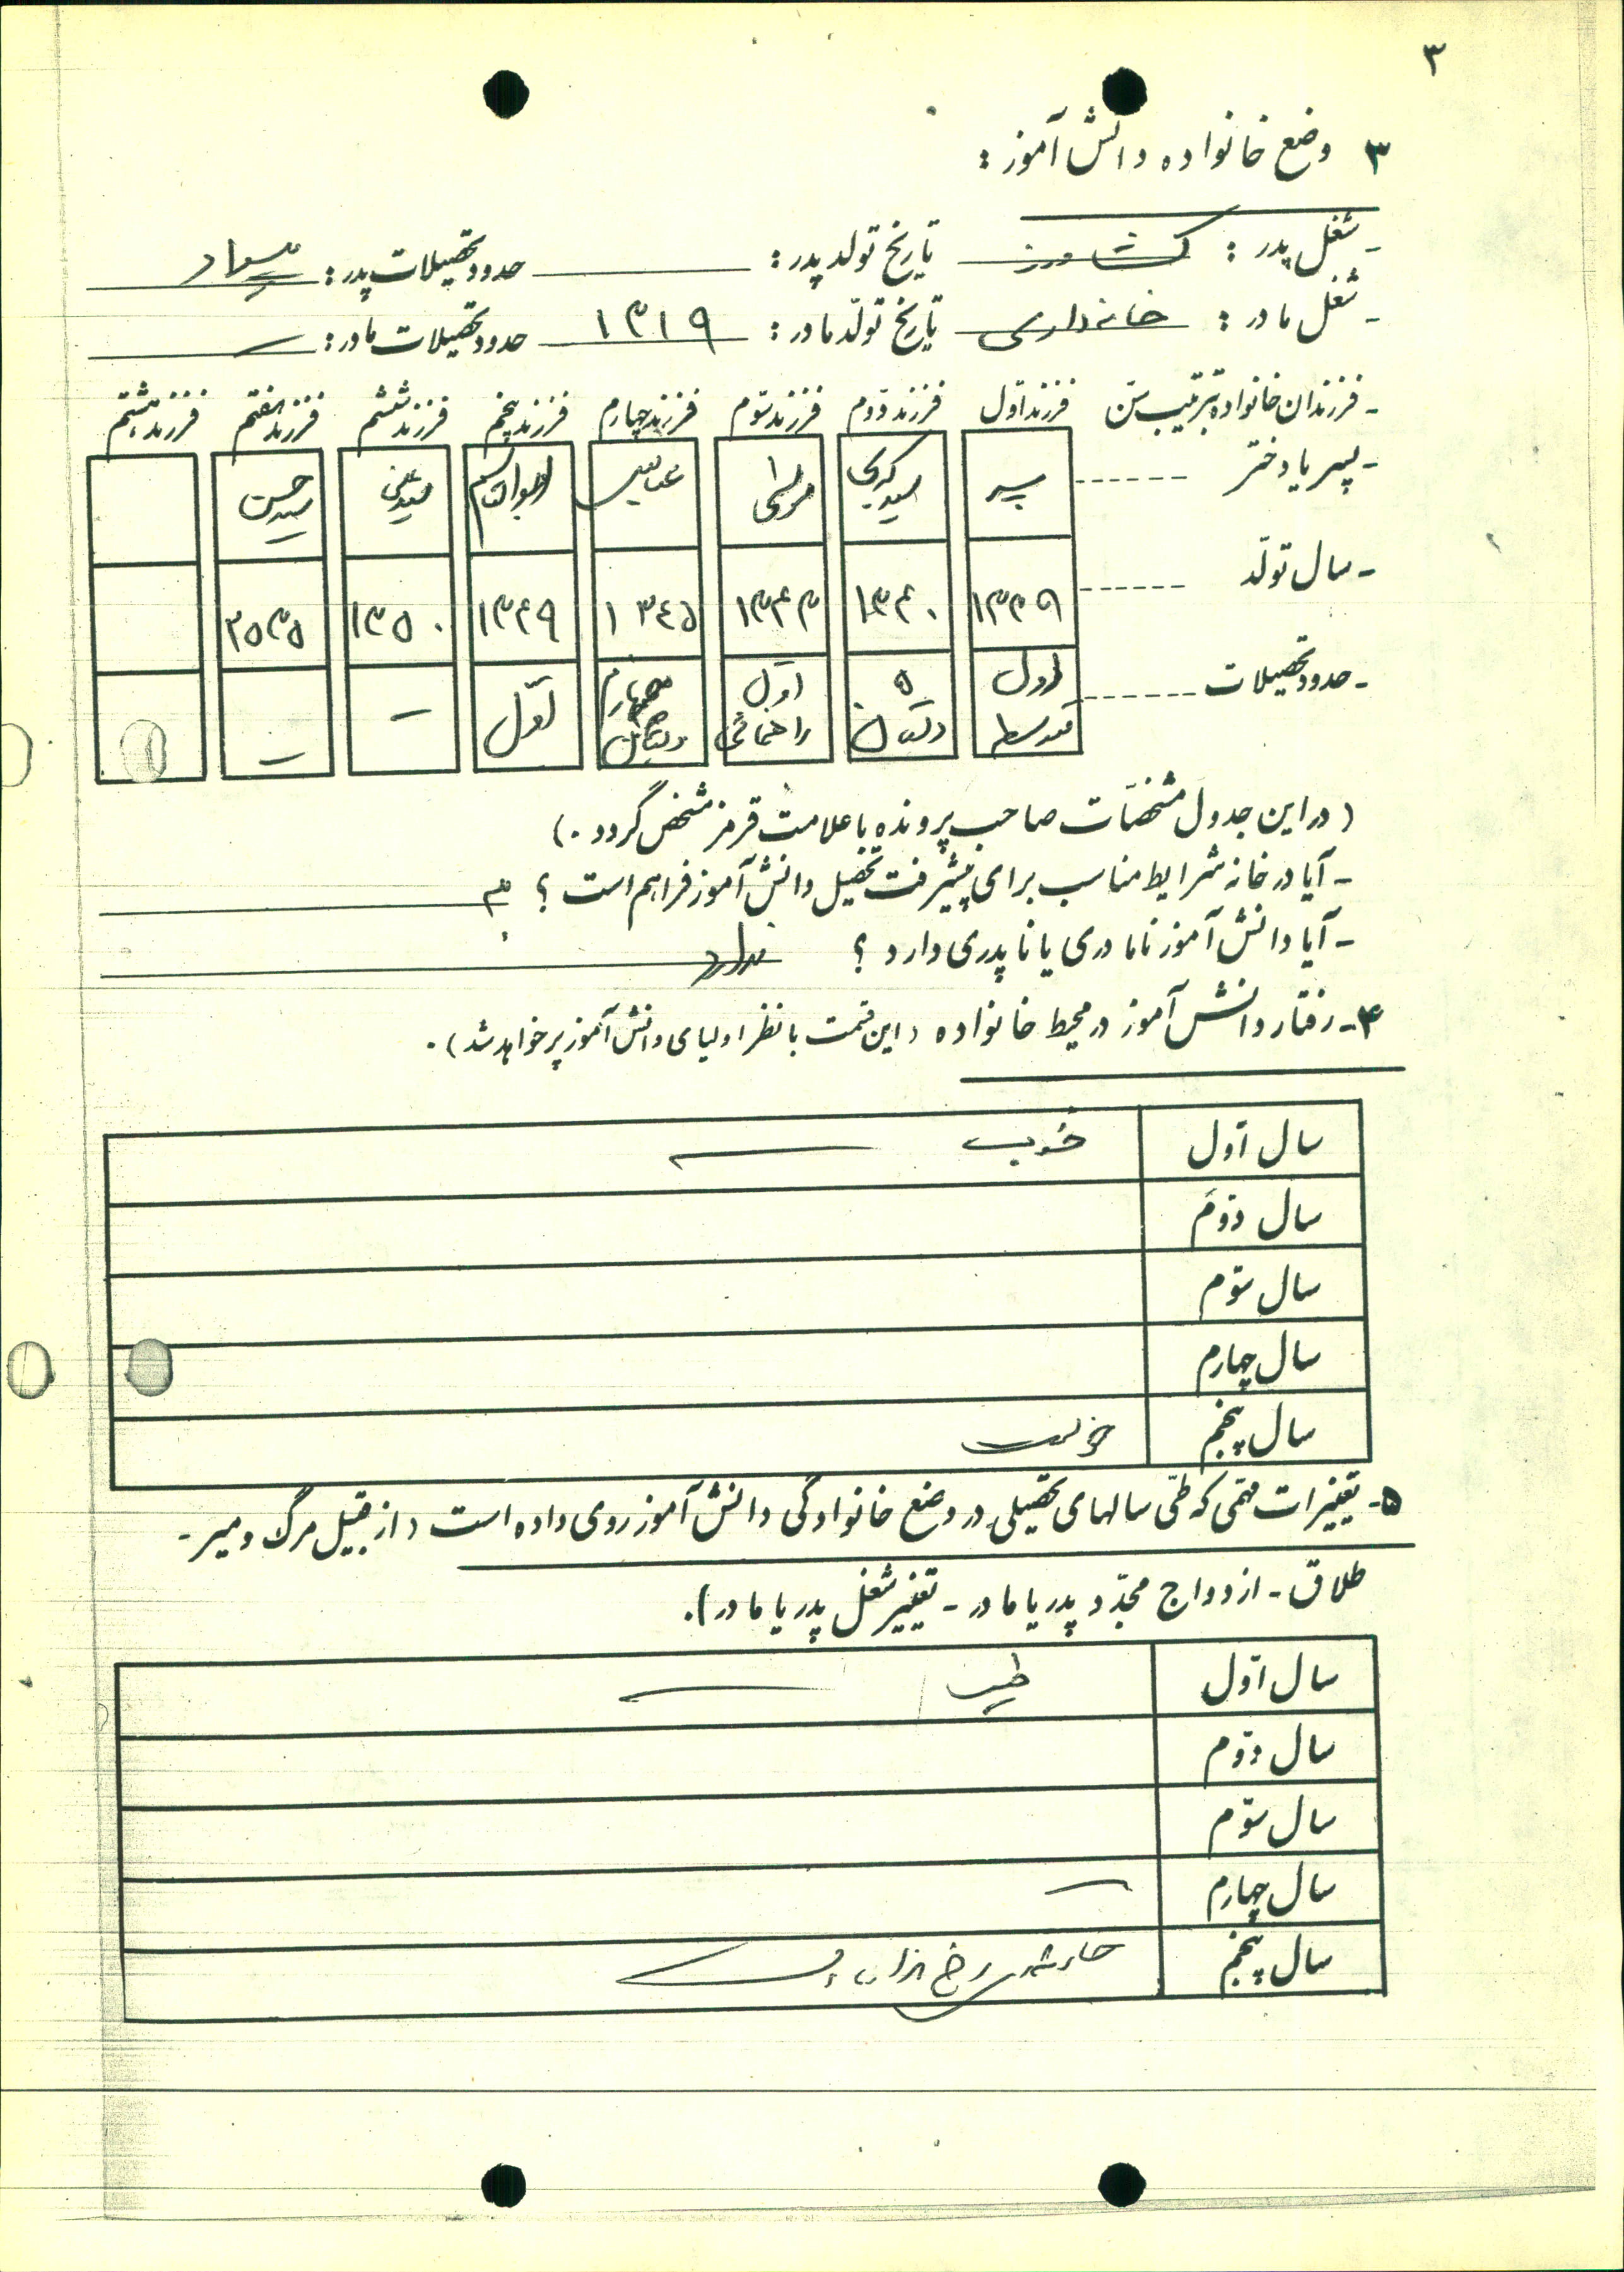 ۳
۳ وضع خانواده دانش آموز :
- شغل پدر : کشاورز تاریخ تولد پدر : حدود تحصیلات پدر : بیسواد
- شغل مادر : خانه داری تاریخ تولد مادر : ۱۳۱۹ حدود تحصیلات مادر :
- فرزندان خانواده بترتیب سن فرزند اول فرزند دوم فرزند سوم فرزند چهارم فرزند پنجم فرزند ششم فرزند هفتم فرزند هشتم
- پسر یا دختر پسر عباس ابوالقاسم سید حسن
- سال تولد ۱۳۳۹ ۱۳۴۰ ۱۳۴۳ ۱۳۴۵ ۱۳۴۹ ۱۳۵۰ ۲۵۳۵
- حدود تحصیلات اول متوسطه ۵ دبستان اول راهنمائی چهارم دبستان اول - -
( در این جدول مشخصات صاحب پرونده با علامت قرمز مشخص گردد . )
- آیا در خانه شرایط مناسب برای پیشرفت تحصیل دانش آموز فراهم است ؟
- آیا دانش آموز نامادری یا ناپدری دارد ؟ ندارد
۴- رفتار دانش آموز در محیط خانواده ( این قسمت با نظر اولیای دانش آموز پر خواهد شد ) .
سال اول خوب
سال دوم
سال سوم
سال چهارم
سال پنجم خوبست
۵- تغییرات مهمی که طی سالهای تحصیلی در وضع خانوادگی دانش آموز روی داده است ( از قبیل مرگ و میر -
طلاق - ازدواج مجدد پدر یا مادر - تغییر شغل پدر یا مادر ) .
سال اول
سال دوم
سال سوم
سال چهارم -
سال پنجم